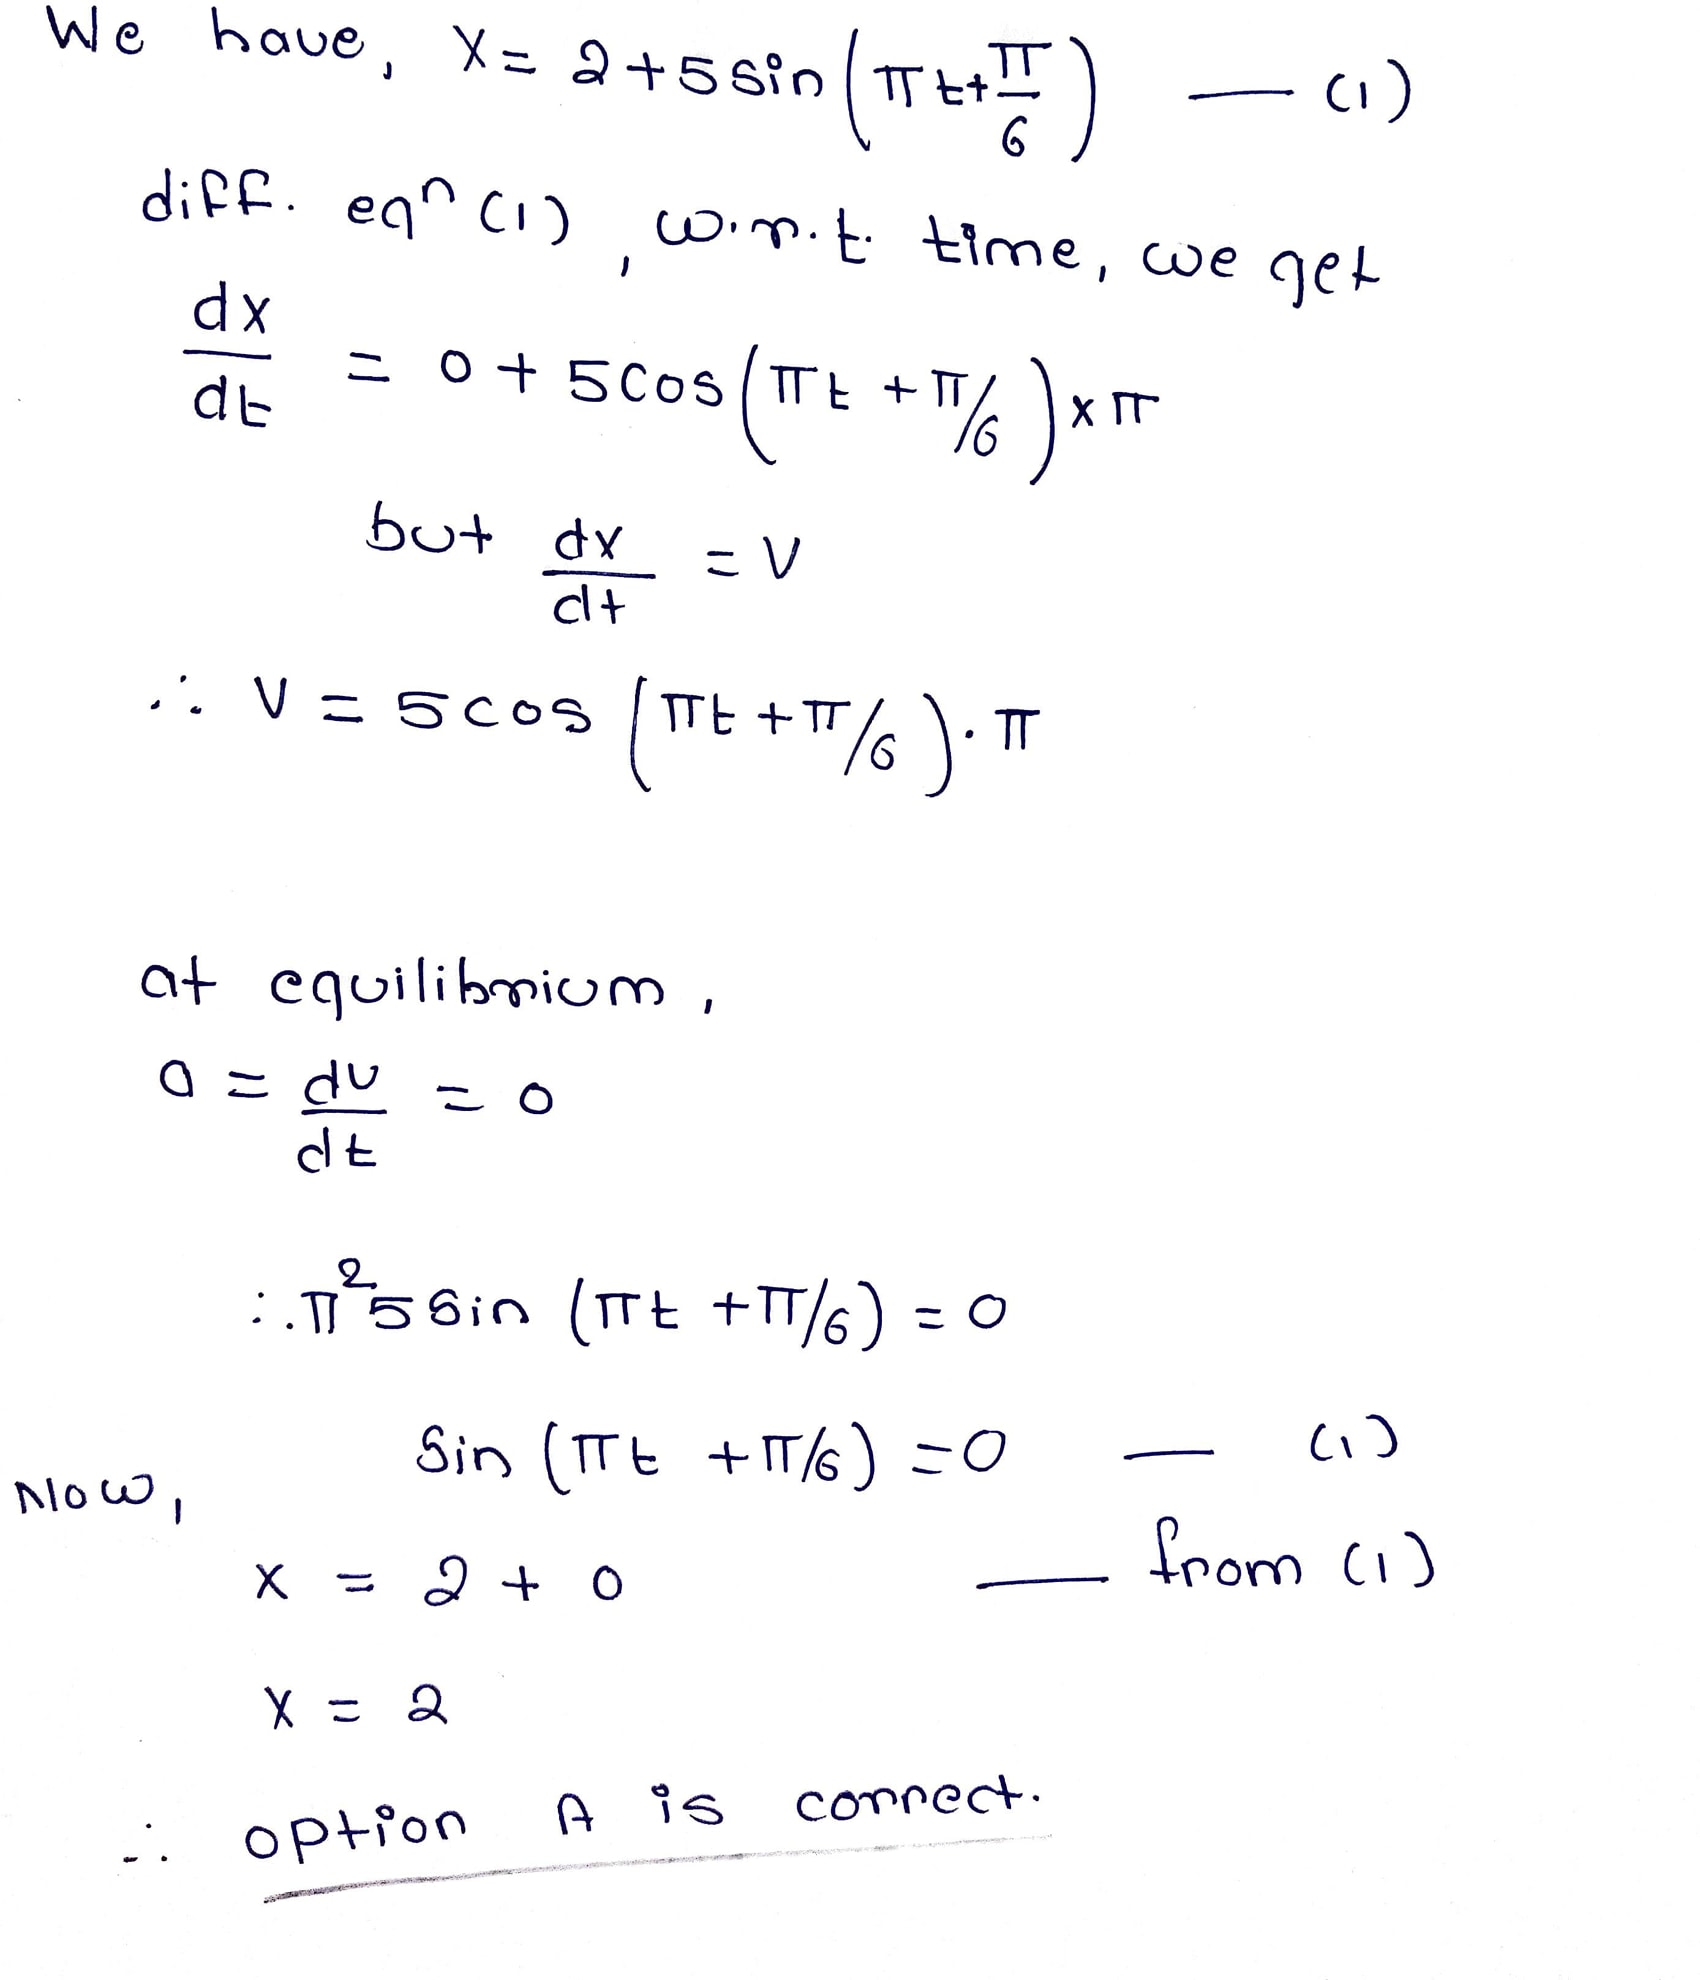 We have, x = 2 + 5 sin (πt + π/6) — (1)
diff. eqⁿ (1), w.r.t. time, we get
dx/dt = 0 + 5 cos (πt + π/6) × π
but dx/dt = v
∴ v = 5 cos (πt + π/6) · π
at equilibrium,
a = dv/dt = 0
∴ π² 5 sin (πt + π/6) = 0
sin (πt + π/6) = 0 — (1)
Now,
x = 2 + 0 — from (1)
x = 2
∴ option A is correct.